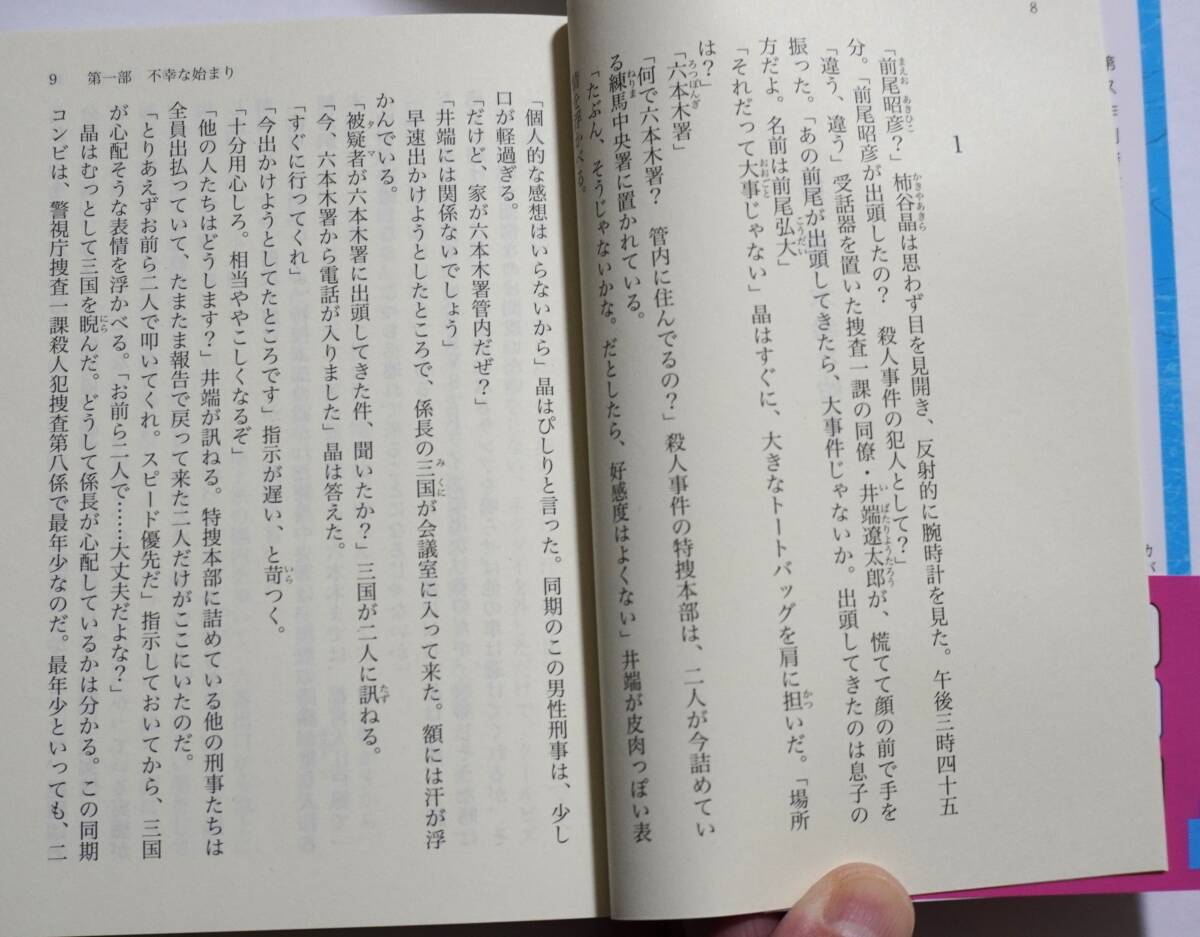 8
1
「前尾昭彦？」柿谷晶は思わず目を見開き、反射的に腕時計を見た。午後三時四十五
分。「前尾昭彦が出頭したの？　殺人事件の犯人として？」
「違う、違う」受話器を置いた捜査一課の同僚・井端遼太郎が、慌てて顔の前で手を
振った。「あの前尾が出頭してきたら、大事件じゃないか。出頭してきたのは息子の
方だよ。名前は前尾弘大」
「それだって大事じゃない」晶はすぐに、大きなトートバッグを肩に担いだ。「場所
は？」
「六本木署」
「何で六本木署？　管内に住んでるの？」殺人事件の特捜本部は、二人が今詰めてい
る練馬中央署に置かれている。
「たぶん、そうじゃないかな。だとしたら、好感度はよくない」井端が皮肉っぽい表
情を浮かべる。
「個人的な感想はいらないから」晶はぴしりと言った。同期のこの男性刑事は、少し
口が軽過ぎる。
「だけど、家が六本木署管内だぜ？」
「井端には関係ないでしょう」
早速出かけようとしたところで、係長の三国が会議室に入って来た。額には汗が浮
かんでいる。
「被疑者が六本木署に出頭してきた件、聞いたか？」三国が二人に訊ねる。
「今、六本木署から電話が入りました」晶は答えた。
「すぐに行ってくれ」
「今出かけようとしてたところです」指示が遅い、と苛つく。
「十分用心しろ。相当ややこしくなるぞ」
「他の人たちはどうします？」井端が訊ねる。特捜本部に詰めている他の刑事たちは
全員出払っていて、たまたま報告で戻って来た二人だけがここにいたのだ。
「とりあえずお前ら二人で叩いてくれ。スピード優先だ」指示しておいてから、三国
が心配そうな表情を浮かべる。「お前ら二人で……大丈夫だよな？」
晶はむっとして三国を睨んだ。どうして係長が心配しているかは分かる。この同期
コンビは、警視庁捜査一課殺人犯捜査第八係で最年少なのだ。最年少といっても、二
9　第一部　不幸な始まり